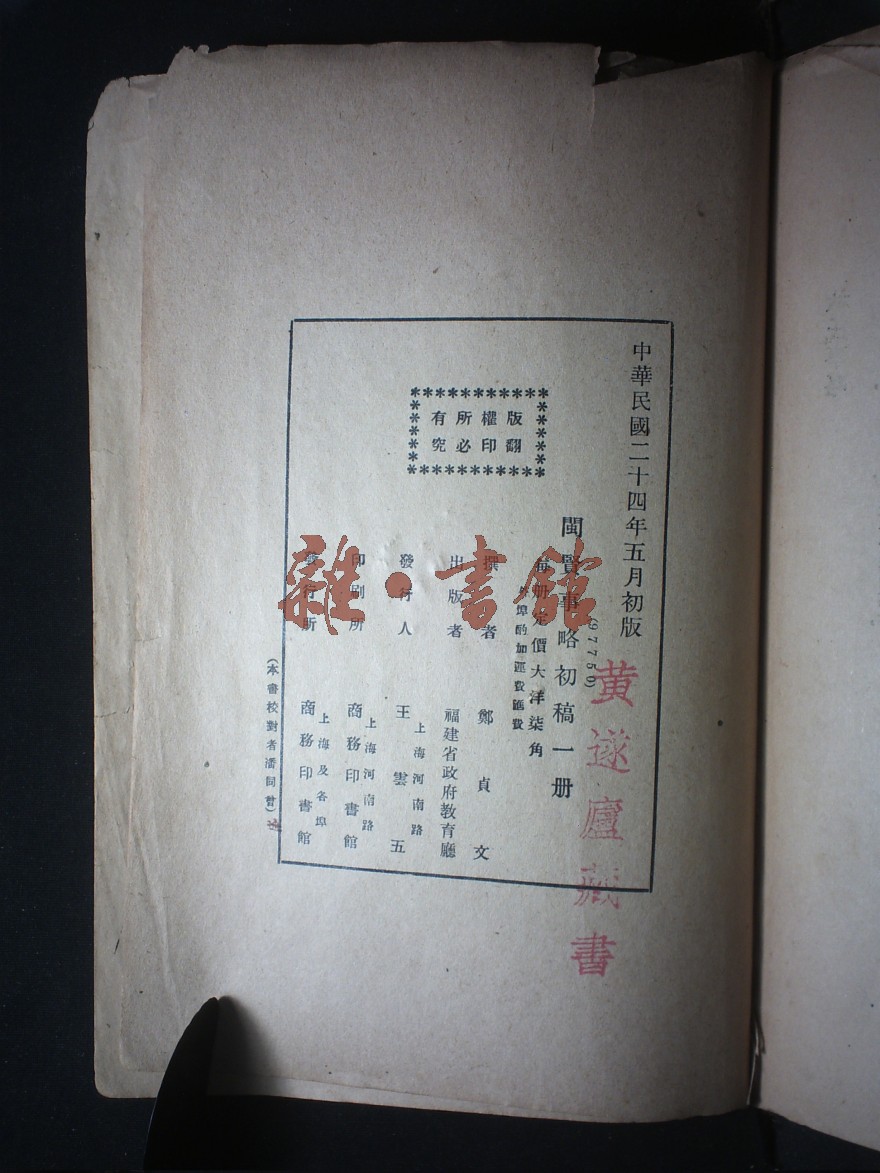 中華民國二十四年五月初版
(97750)
閩賢事略初稿一册
每册定價大洋柒角
外埠酌加運費匯費
版權所有
翻印必究
撰者 鄭貞文
出版者 福建省政府教育廳
發行人 王雲五
上海河南路
印刷所 商務印書館
上海河南路
發行所 商務印書館
上海及各埠
(本書校對者潘同曾)
黄遂廬藏書
雜·書館